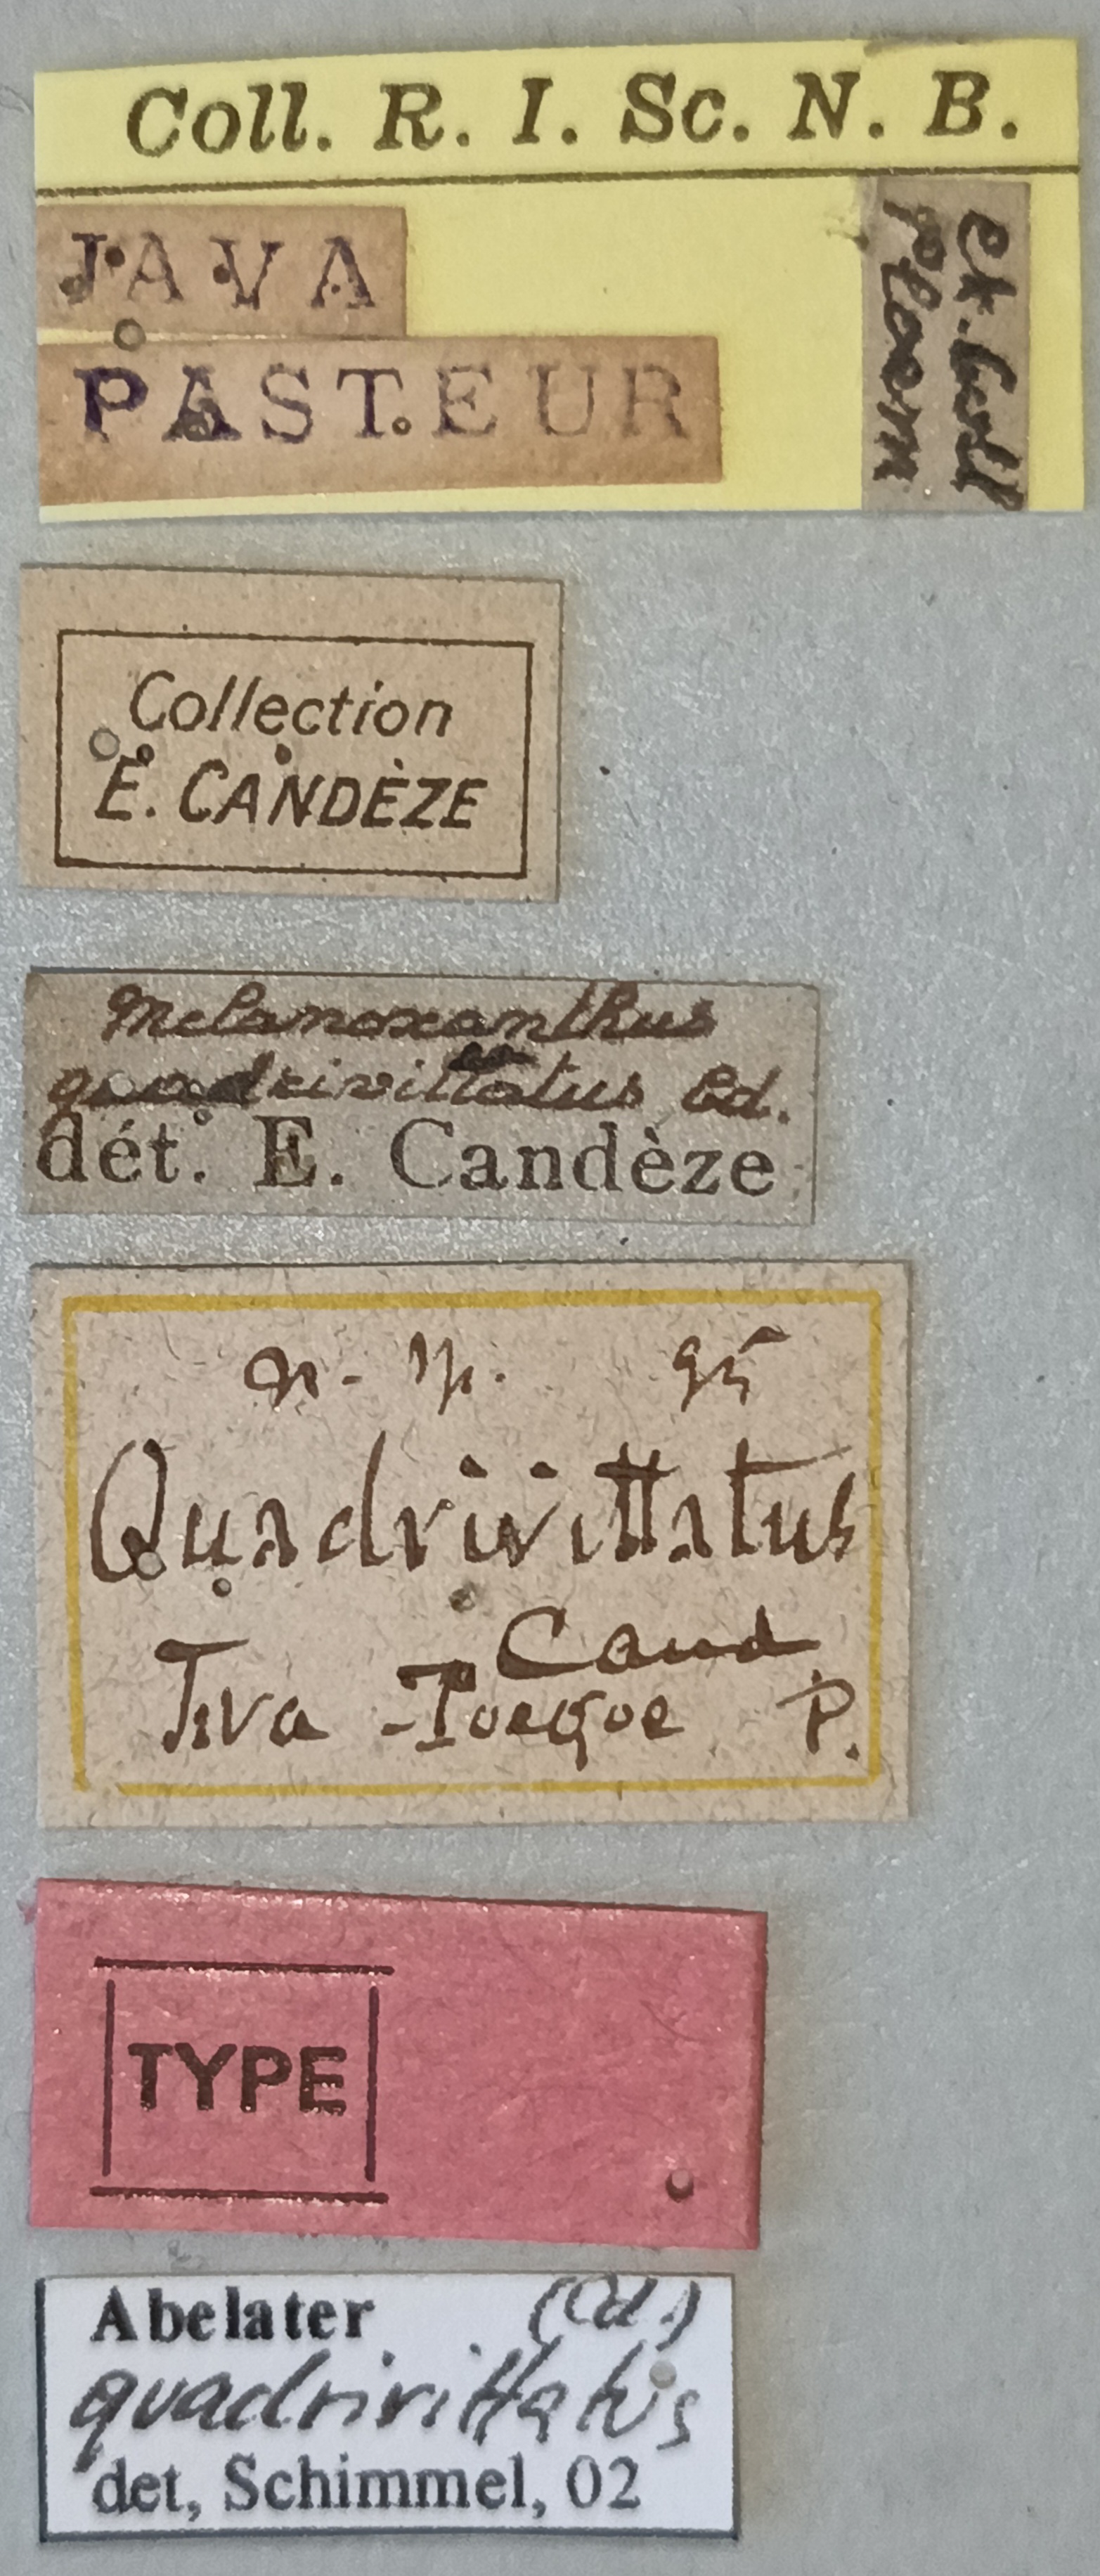 Coll. R. I. Sc. N. B.
JAVA
PASTEUR
ex. Coll
Ploem
Collection
E. CANDÈZE
Melanoxanthus
quadrivittatus Cd.
dét. E. Candèze
n. sp. 95
Quadrivittatus
Cand
P.
TYPE
Abelater (Cd.)
quadrivittatus
det, Schimmel, 02